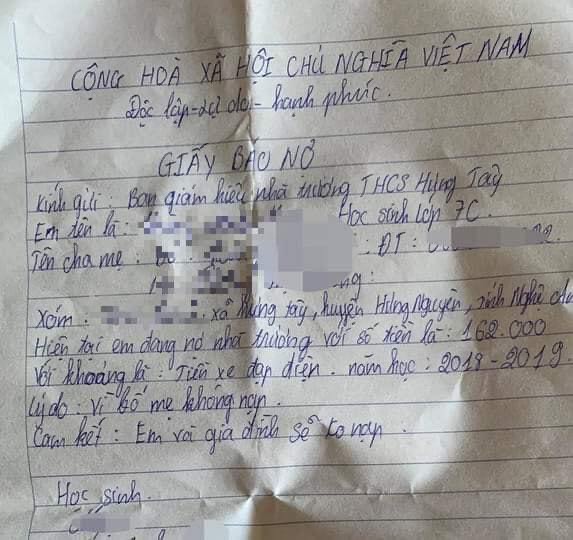 CỘNG HOÀ XÃ HỘI CHỦ NGHĨA VIỆT NAM
Độc lập - tự do - hạnh phúc.
GIẤY BÁO NỢ
Kính gửi: Ban giám hiệu nhà trường THCS Hưng Tây
Em tên là: Học sinh lớp 7C.
Tên cha mẹ: : ĐT:
Xóm: xã Hưng tây, huyện Hưng Nguyên, tỉnh Nghệ An
Hiện tại em đang nợ nhà trường với số tiền là: 162.000
Với khoảng là: Tiền xe đạp điện. năm học: 2018-2019.
Lý do: vì bố mẹ không nạp.
Cam kết: Em và gia đình sẽ ko nạp.
Học sinh.